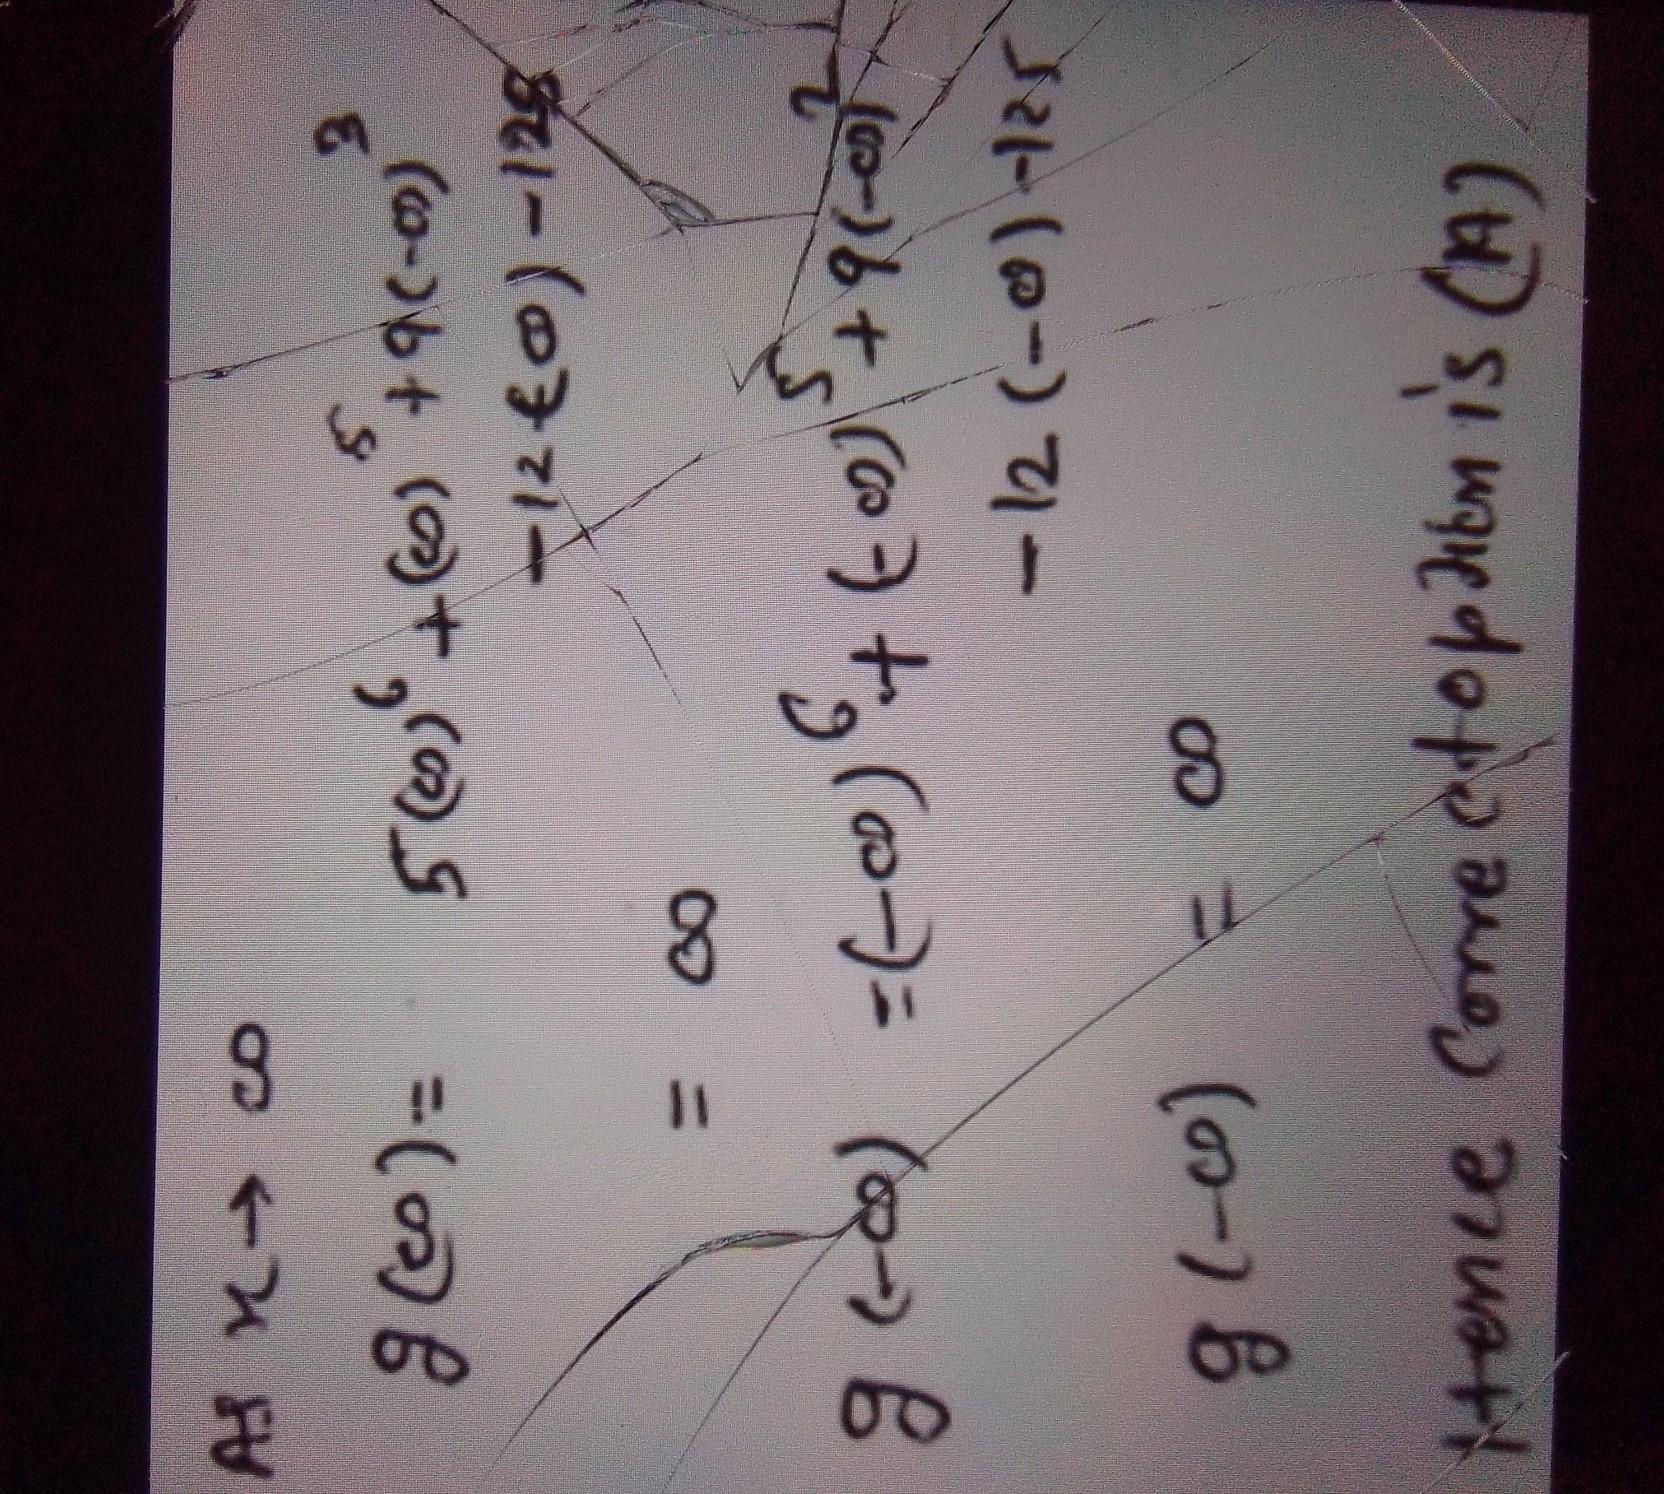 As x → ∞
g(∞) = 5(∞)⁶ + (∞)⁵ + 9(-∞)³
-12(-∞) -128
= ∞
g(-∞) = (-∞)⁶ + (-∞)⁵ + 9(-∞)²
-12(-∞) -125
g(-∞) = ∞
Hence Correct option is (A)